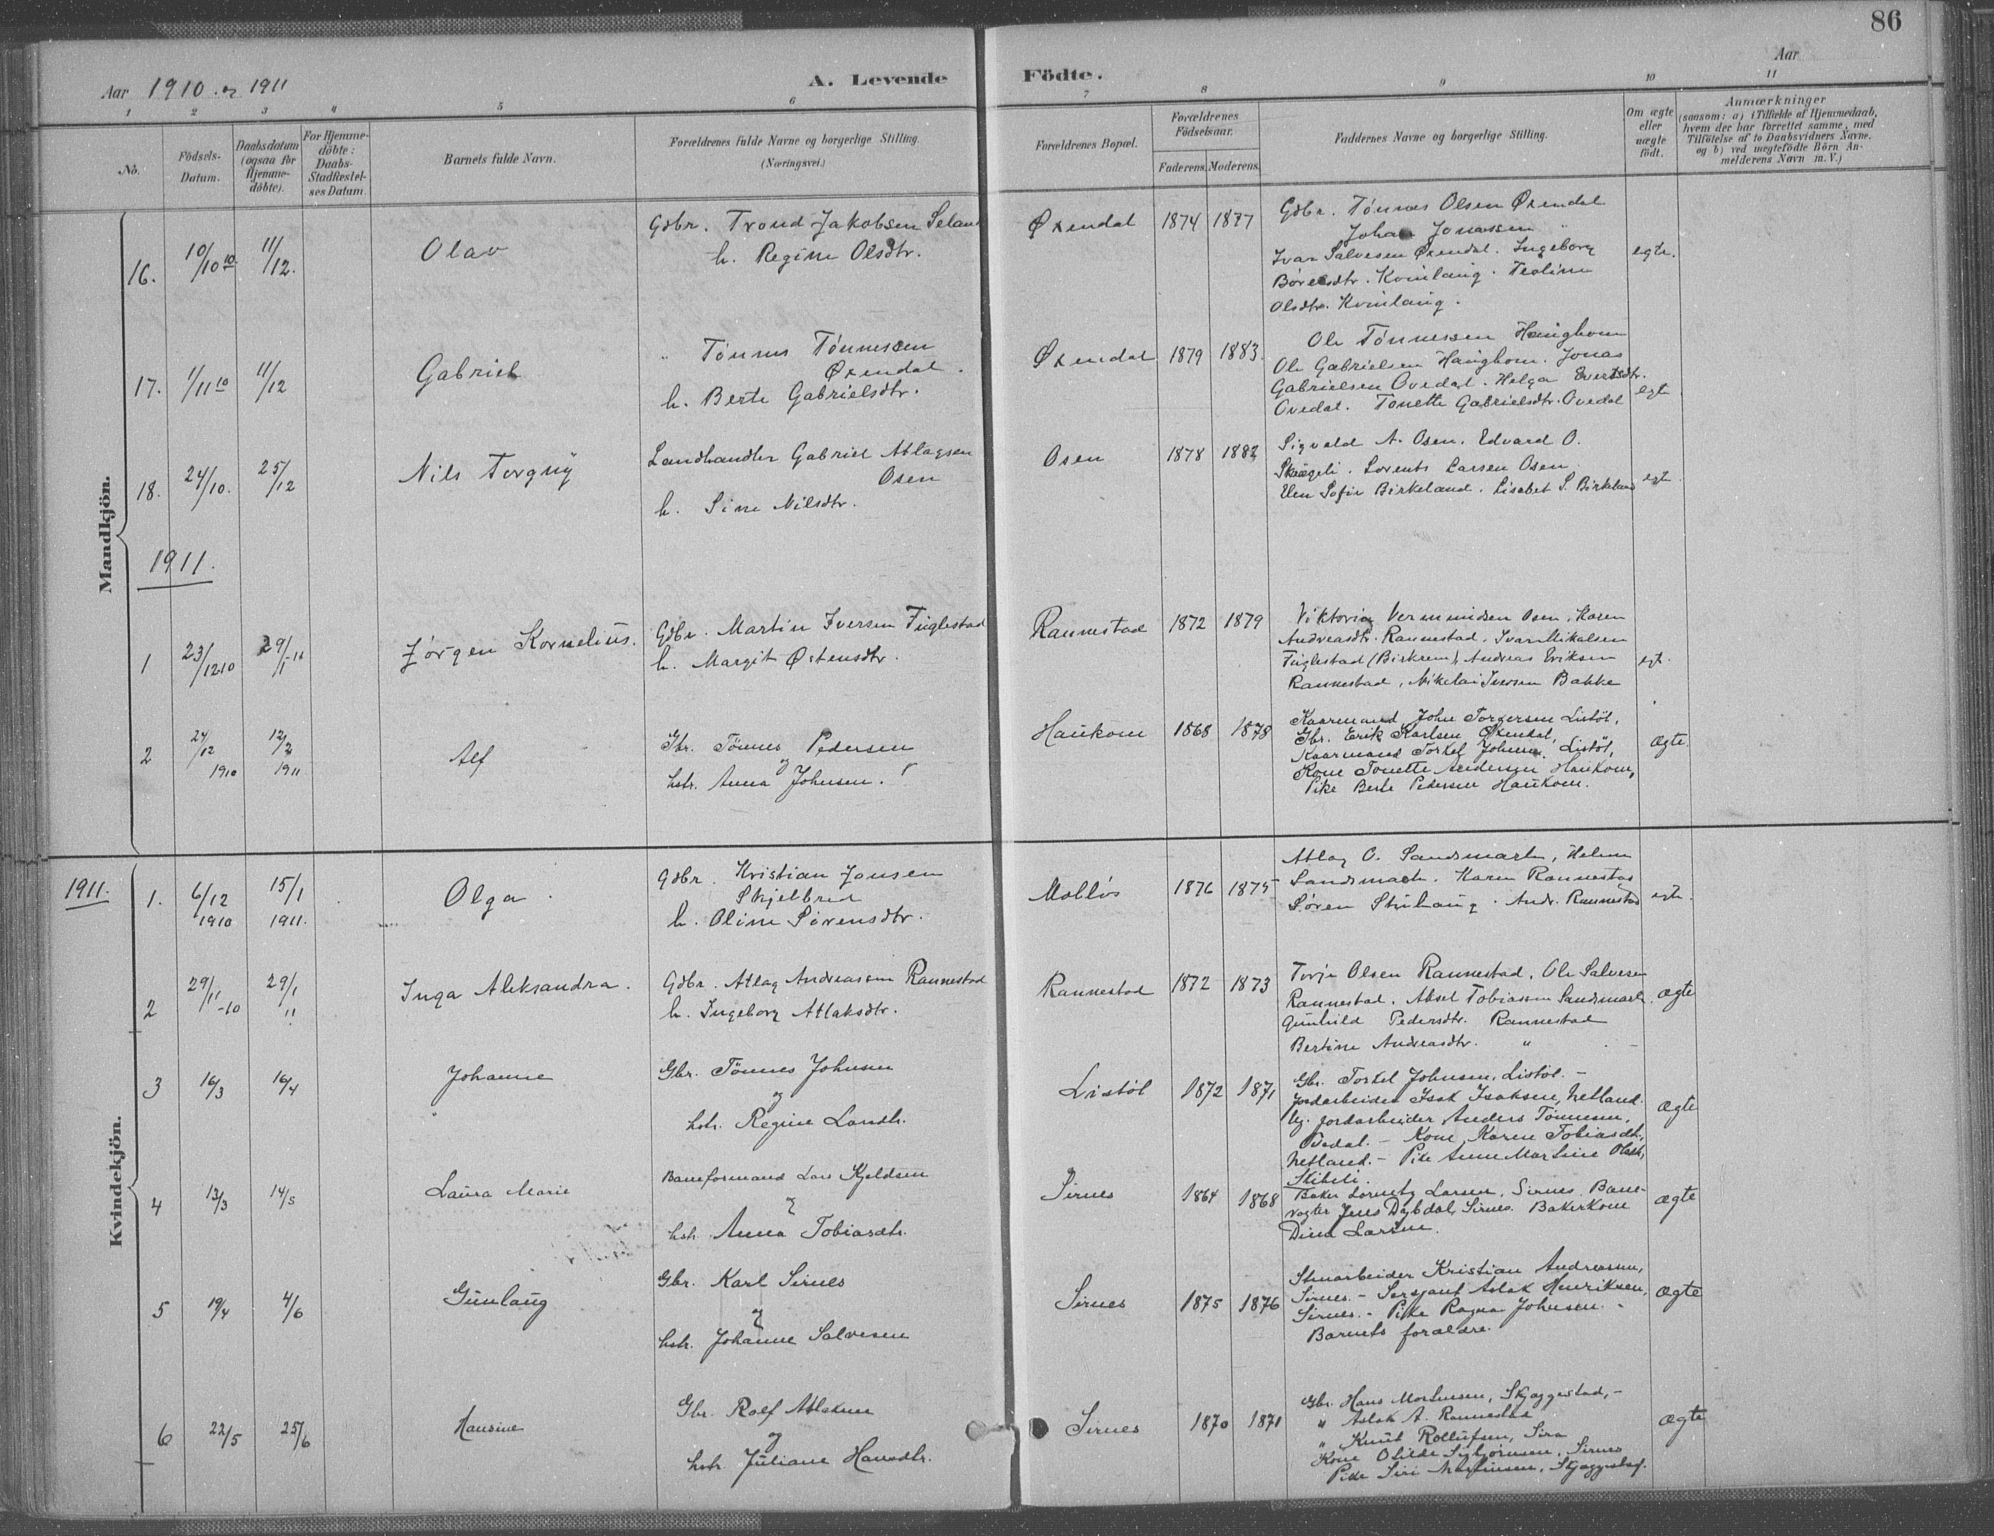 86
Aar 1910 og 1911
A. Levende Födte.
Aar
1 2 3 4 5 6 7 8 9 10 11
No.
Födsels-Datum.
Daabsdatum (ogsaa for Hjemmedöbte).
For Hjemmedöbte: Daabs-Stadfæstelses Datum.
Barnets fulde Navn.
Forældrenes fulde Navne og borgerlige Stilling.
(Næringsvei.)
Forældrenes Bopæl.
Forældrenes Födselsaar.
Faderens. Moderens.
Faddernes Navne og borgerlige Stilling.
Om ægte eller uægte födt.
Anmærkninger
(saasom: a) i Tilfælde af Hjemmedaab, hvem der har forrettet samme, med Tilföielse af to Daabsvidners Navne, og b) ved uægtefödte Börn Anmelderens Navn m. V.)
Mandkjön.
16. 10/10 10 11/12. Olav
Gdbr. Trond Jakobsen Seland
h. Regine Olsdtr.
Øxendal 1874 1877
Gdbr. Tønnes Olsen Øxendal
Johan Jonassen "
Ivar Salvesen Øxendal. Ingeborg
Børesdtr. Kvinlaug. Teoline
Olsdtr. Kvinlaug.
egte.
17. 1/11 10 11/12 Gabriel
" Tønnes Tønnessen
Øxendal.
h. Berte Gabrielsdtr.
Øxendal 1879 1883.
Ole Tønnessen Haughom
Ole Gabrielsen Haughom. Jonas
Gabrielsen Ovedal. Helga Evertsdtr.
Ovedal. Tonette Gabrielsdtr. Ovedal
egte.
18. 24/10. 25/12 Nils Torgny
Landhandler Gabriel Atlagsen
Osen
h. Sine Nilsdtr.
Osen 1878 1882
Sigvald A. Osen. Edvard O.
Skaageli. Lorents Larsen Osen
Elen Sofie Birkeland. Lisabet S. Birkeland
egte.
1911.
1 23/12 10 29/1-11 Jørgen Kornelius.
Gdbr. Martin Iversen Fuglestad
h. Margit Østensdtr.
Rannestad 1872 1879
Viktoria Vermundsen Osen, Karen
Andreasdtr. Rannestad, Ivar Mikalsen
Fuglestad (Birkrem), Andreas Eriksen
Rannestad, Nikolai Iversen Bakke
egt.
2 24/12 1910 12/2 1911 Alf
Gbr. Tønnes Pedersen
og
hstr. Anna Johnsen.
Haukom 1868 1878
Kaarmand John Torgersen Listöl,
Gbr. Erik Karlsen Øxendal,
Kaarmand Torkel Johnsen, Listöl,
Kone Tonette Andersen Haukom,
Pike Berte Pedersen Haukom.
Ægte
Kvindekjön.
1911. 1. 6/12 1910 15/1 1911. Olga.
Gdbr. Kristian Jonsen
Skjelbred
h. Oline Sørensdtr.
Molløs 1876 1875
Atlag O. Sandsmark, Helene
Sandsmark. Karen Rannestad
Søren Stulaug. Andr. Rannestad
egt.
2 29/11-10 29/1 11 Inga Aleksandra.
Gdbr. Atlag Andreassen Rannestad
h. Ingeborg Atlaksdtr.
Rannestad 1872 1873
Torje Olsen Rannestad, Ole Salvesen
Rannestad. Aksel Tobiassen Sandsmark.
Gunhild Pedersdtr. Rannestad
Bertine Andreasdtr. "
Ægte
3 16/3 16/4 Johanne
Gbr. Tönnes Johnsen
og
hstr. Regine Larsdtr.
Listöl 1872 1871
Gbr. Torkel Johnsen, Listöl. -
Jordarbeider Isak Isaksen, Netland.
Ug. jordarbeider Anders Tønnesen,
Ovedal. - Kone Karen Tobiasdtr,
Netland. - Pike Anne Martine Olsdtr,
Skibeli.
Ægte
4 13/3 14/5 Laura Marie
Baneformand Lars Kjeldsen
og
hstr. Anna Tobiasdtr.
Sirnes 1864 1868
Baker Lorentz Larsen, Sirnes. Bane-
vogter Jens Dybdal, Sirnes. Bakerkone
Dina Larsen.
Ægte
5 19/4 4/6 Gunlaug
Gbr. Karl Sirnes
og
hstr. Johanne Salvesen
Sirnes 1875 1876
Stenarbeider Kristian Andreassen,
Sirnes. - Sersjant Aslak Henriksen,
Sirnes. - Pike Ragna Johnsen. -
Barnets forældre.
Ægte
6 22/5 25/6 Hansine
Gbr. Rolf Atlaksen
og
hstr. Juliane Hansdtr.
Sirnes 1870 1871
Gbr. Hans Mortensen, Skjeggestad, -
" Aslak A. Rannestad
" Knut Rollufsen, Sira
Kone Otilde Sigbjörnsen, Sirnes
Pike Siri Martinsen, Skjeggestad.
Ægte